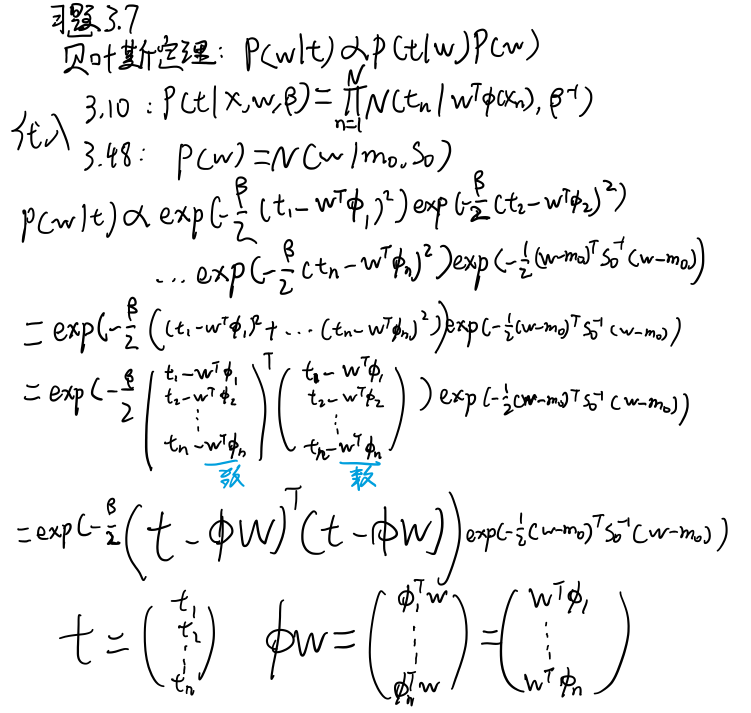 习题3.7
贝叶斯定理: P(w|t) ∝ p(t|w)P(w)
代入 3.10 : P(t|x,w,β) = ∏_{n=1}^{N} N(t_n|w^Tφ(x_n), β^{-1})
3.48: P(w) = N(w|m_0, S_0)
P(w|t) ∝ exp(-β/2 (t_1-w^Tφ_1)^2) exp(-β/2 (t_2-w^Tφ_2)^2)
... exp(-β/2 (t_n-w^Tφ_n)^2) exp(-1/2 (w-m_0)^T S_0^{-1} (w-m_0))
= exp(-β/2 ((t_1-w^Tφ_1)^2 + ... (t_n-w^Tφ_n)^2)) exp(-1/2 (w-m_0)^T S_0^{-1} (w-m_0))
= exp(-β/2 (t_1-w^Tφ_1 t_2-w^Tφ_2 ⋮ t_n-w^Tφ_n)^T (t_1-w^Tφ_1 t_2-w^Tφ_2 ⋮ t_n-w^Tφ_n)) exp(-1/2 (w-m_0)^T S_0^{-1} (w-m_0))
数 数
= exp(-β/2 (t-φw)^T (t-φw)) exp(-1/2 (w-m_0)^T S_0^{-1} (w-m_0))
t = (t_1 t_2 ⋮ t_n) φw = (φ_1^T w ⋮ φ_n^T w) = (w^Tφ_1 ⋮ w^Tφ_n)